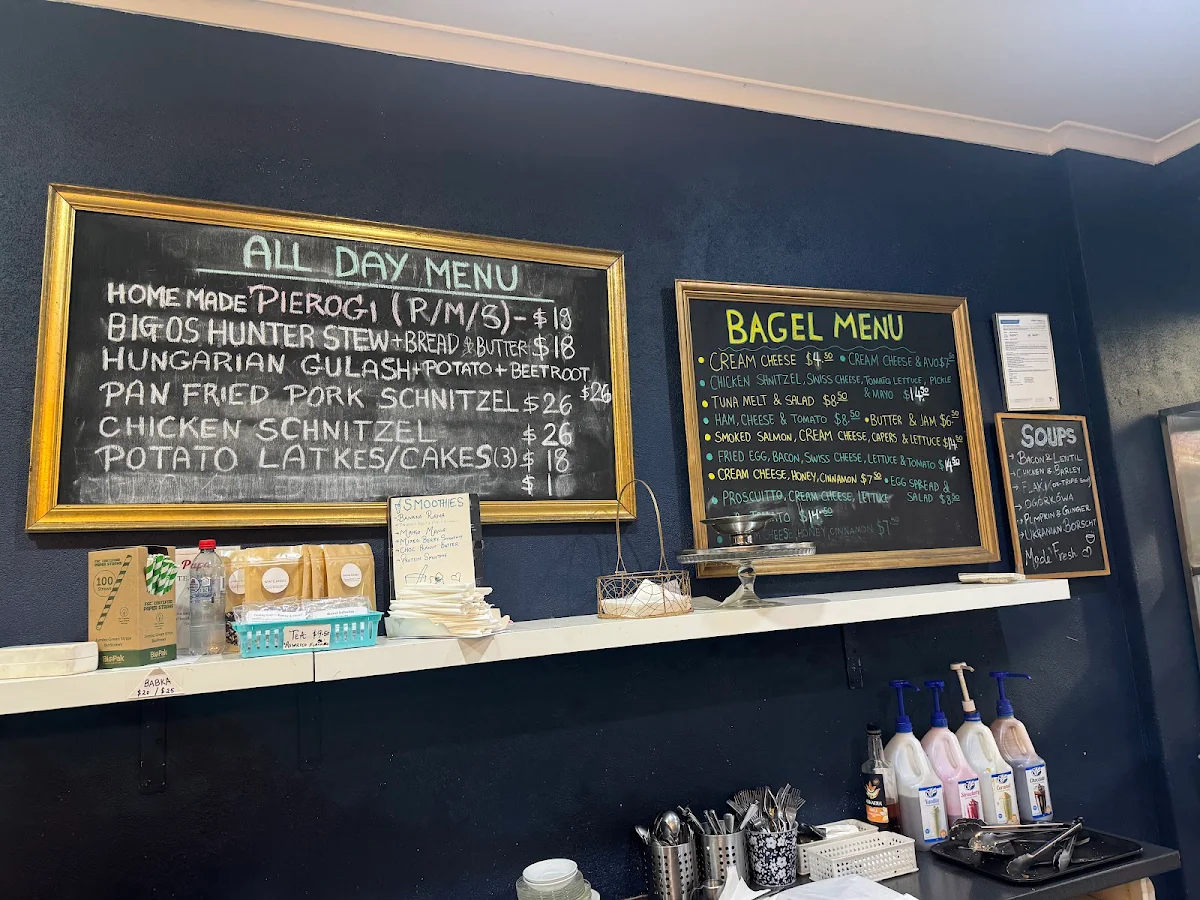 ALL DAY MENU
HOME MADE PIEROGI (R/M/S) - $18
BIGOS HUNTER STEW + BREAD & BUTTER $18
HUNGARIAN GULASH + POTATO + BEETROOT
$26
PAN FRIED PORK SCHNITZEL $26
CHICKEN SCHNITZEL $26
POTATO LATKES/CAKES (3) $18
$1
BAGEL MENU
CREAM CHEESE $4.50
CREAM CHEESE & AVO $7.50
CHICKEN SHNITZEL, SWISS CHEESE, TOMATO, LETTUCE, PICKLE
& MAYO $14.50
TUNA MELT & SALAD $8.50
HAM, CHEESE & TOMATO $8.50
BUTTER & JAM $6.50
SMOKED SALMON, CREAM CHEESE, CAPERS & LETTUCE $14.50
FRIED EGG, BACON, SWISS CHEESE, LETTUCE & TOMATO $14.50
CREAM CHEESE, HONEY, CINNAMON $7.50
EGG SPREAD &
SALAD $8.50
PROSCUITTO, CREAM CHEESE, LETTUCE
$14.50
HONEY CINNAMON $7.50
SOUPS
BACON & LENTIL
CHICKEN & BARLEY
FLAKI (OX-TRIPE SOUP)
OGÓRKÓWA
PUMPKIN & GINGER
UKRANIAN BORSCHT
Made Fresh
SMOOTHIES
MIXED BERRY SMOOTHIE
CHOC PEANUT BUTTER
PROTEIN SMOOTHIE
100
STRAWS
BioPak
BioPak
TEA $9.50
BABKA
$20 / $25
Vanilla
Strawberry
Caramel
Chocolate